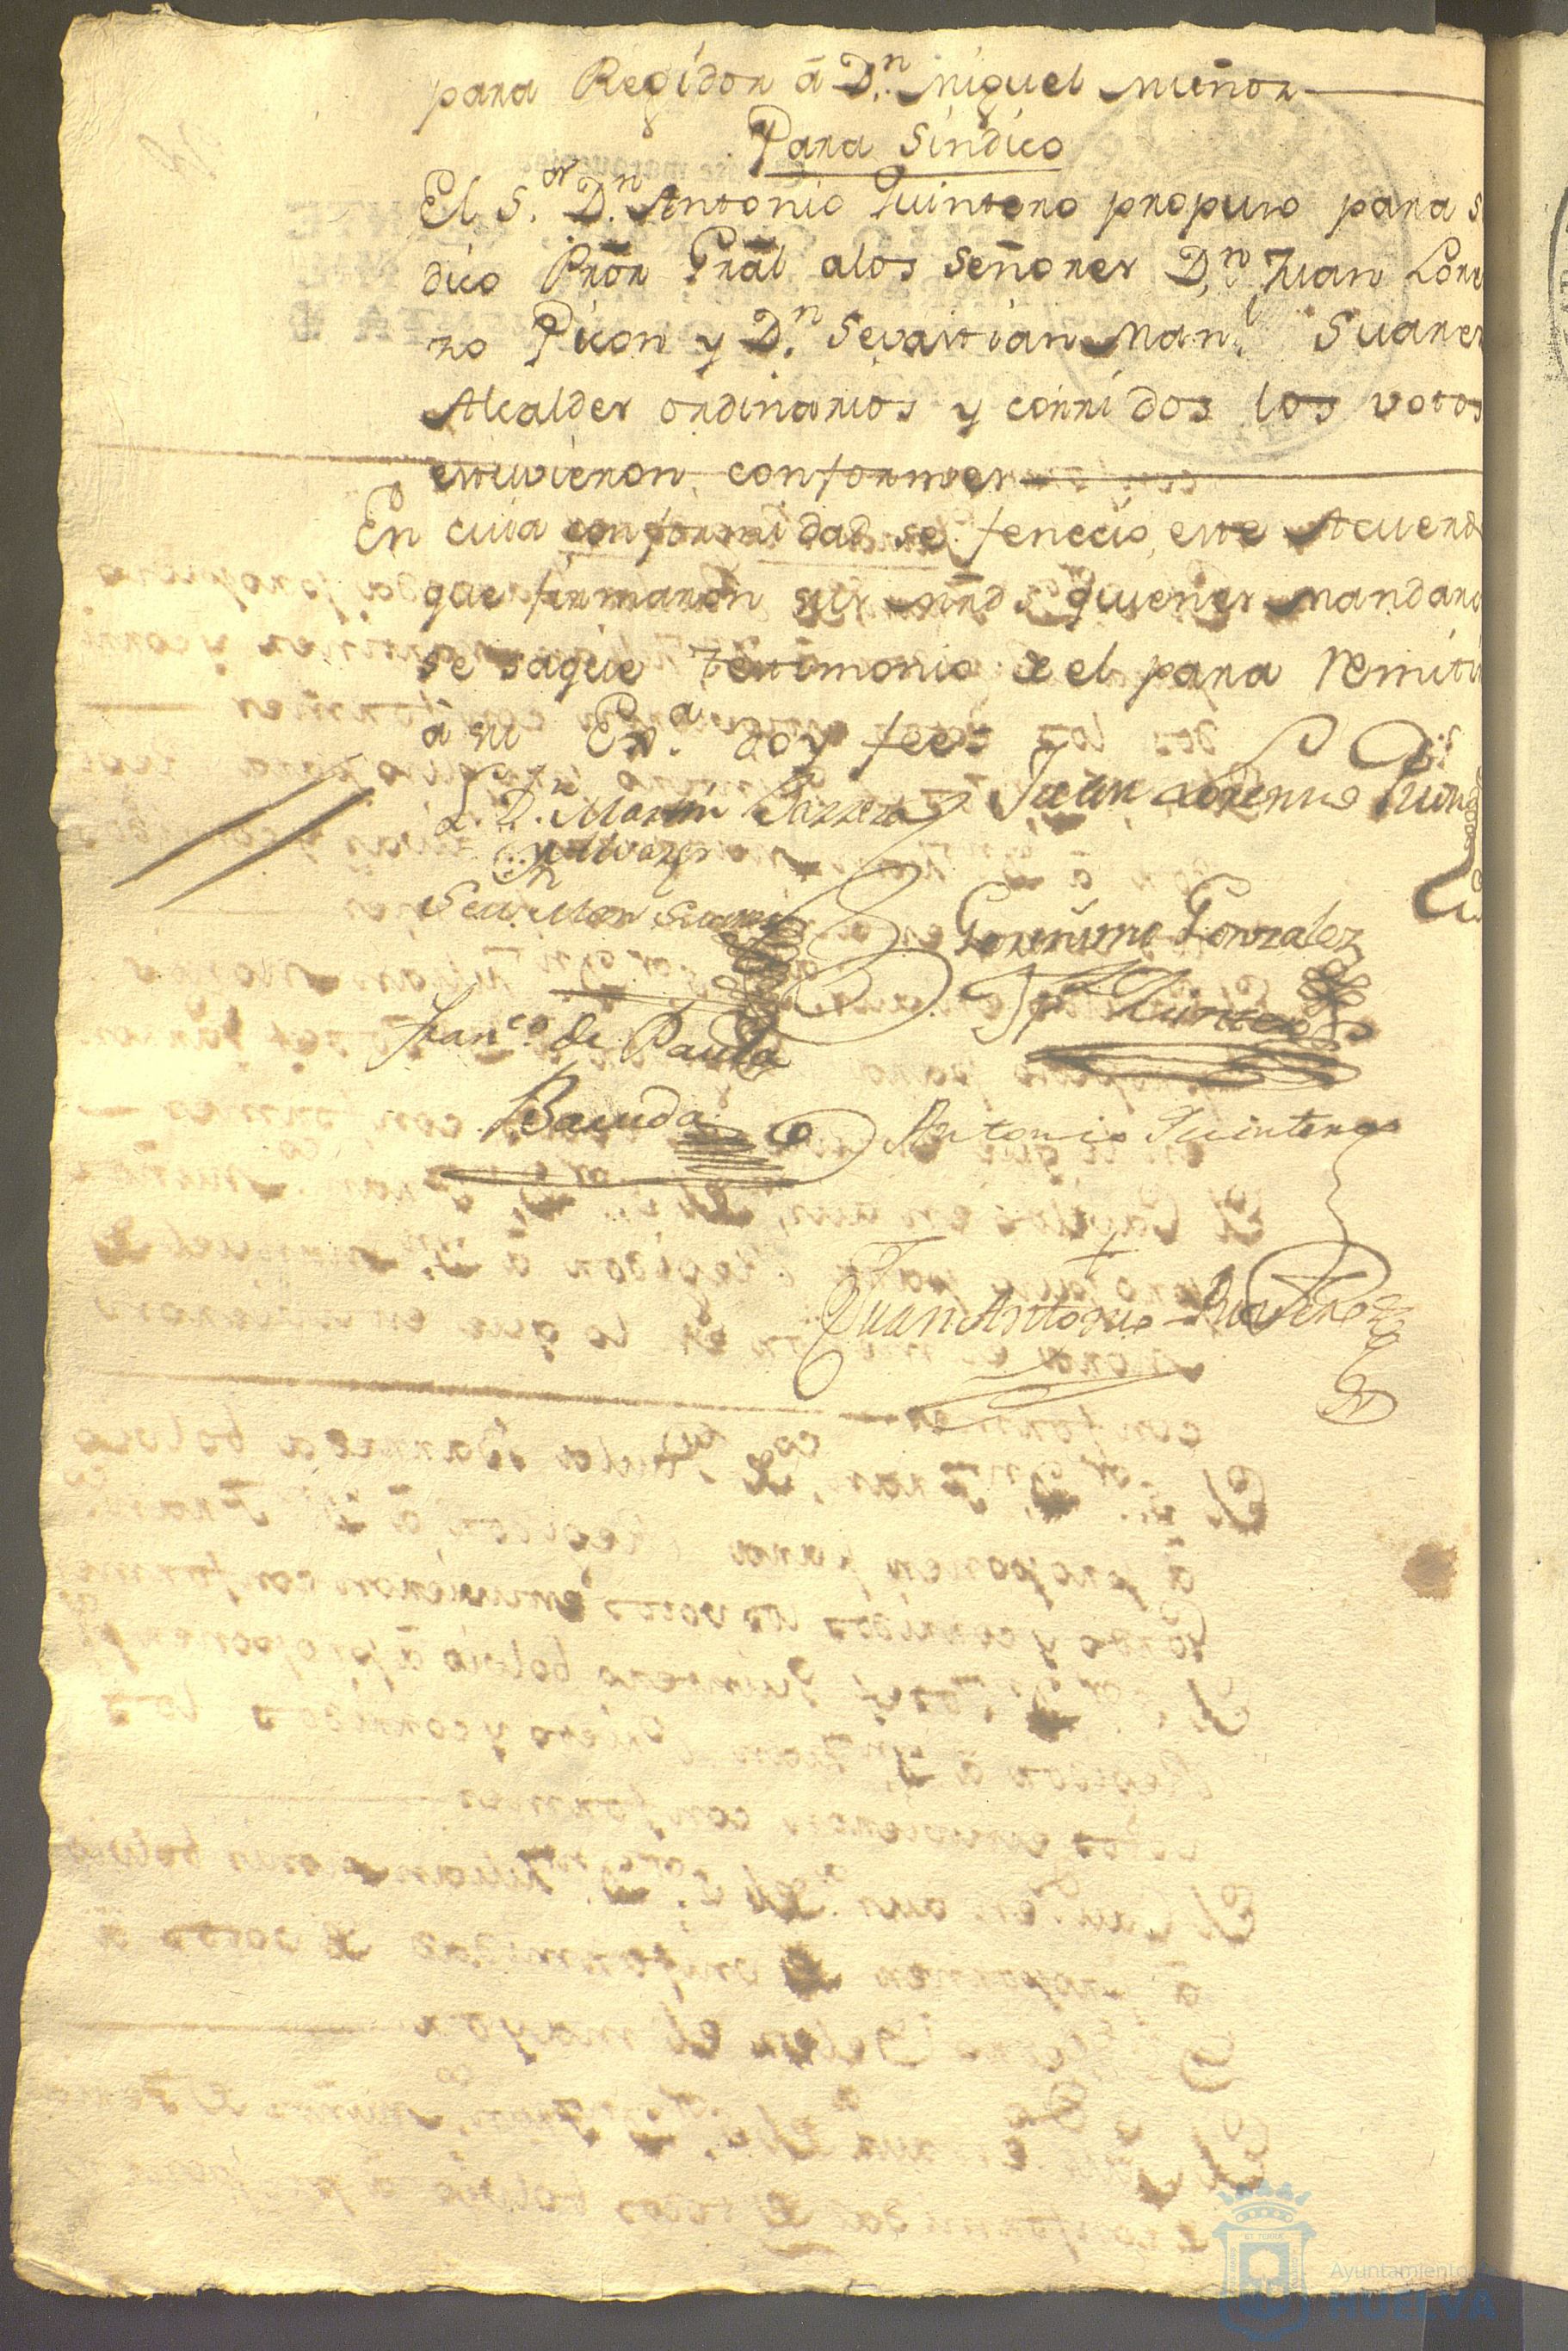 para Regidor â Dn. Miguel Muñoz
Para Sindico
El Sor. Dn. Antonio Quintero propuso para s
dico Prõr Grãl alos Señores Dn. Juan Lore
zo Picon y Dn. Sevastian Manl. Suares
Alcaldes ordinarios y corridos los votos
estuvieron conformes
En cuia conformidad se fenecio este Acuerd
que firmaron sus mrds quienes mandaro
se saque testimonio de el para remiti
â su Exa. doy fee
L. Dn. Martin Barrera
y Alvarez
Juan Lorenzo
Sevn. Man Suares
Geronimo Gonzalez
Franco. de Paula
Quintero
Barreda
Antonio Quintero
Juan Antonio
Ayuntamiento
HUELVA